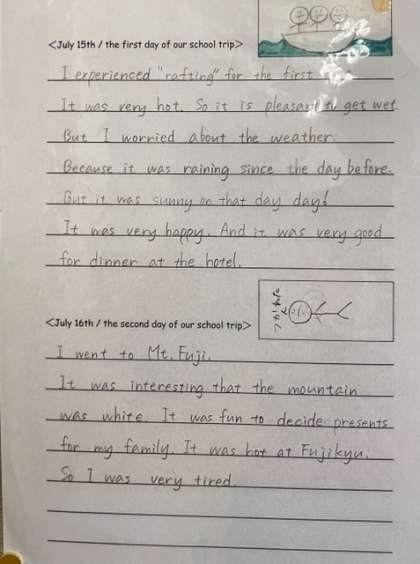 <July 15th / the first day of our school trip>
I experienced "rafting" for the first
It was very hot. So it is pleasant to get wet
But I worried about the weather.
Because it was raining since the day before.
But it was sunny on that day day!
It was very happy. And it was very good
for dinner at the hotel.
<July 16th / the second day of our school trip>
I went to Mt. Fuji.
It was interesting that the mountain
was white. It was fun to decide presents
for my family. It was hot at Fujikyu.
So I was very tired.